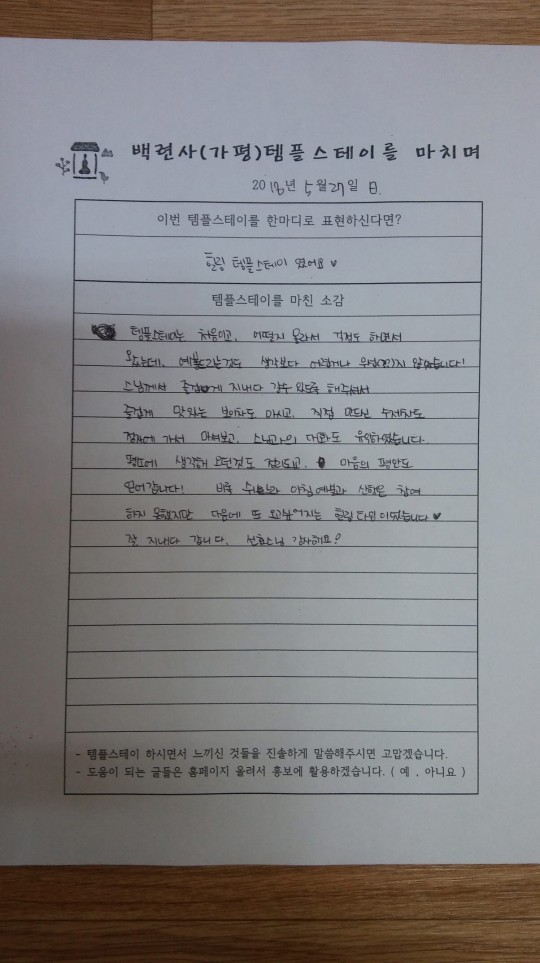 백련사(가평)템플스테이를 마치며
2018년 5월 27일
이번 템플스테이를 한마디로 표현하신다면?
힐링 템플스테이 였어요 ♥
템플스테이를 마친 소감
템플스테이는 처음이고, 어떨지 몰라서 걱정도 하면서
왔는데, 예불드리는것도 생각보다 어렵거나 않았습니다!
스님께서 즐겁게 지내다 갈수 있도록 해주셔서
즐겁게 맛있는 보이차도 마시고, 직접 만드신 수제차도
정자에 가서 마셔보고, 스님과의 대화도 유익하였습니다.
평소에 생각해 오던것도 정리되고, 마음의 평안도
얻어갑니다! 비록 아침예불과 산행은 참여
하지 못했지만 다음에 또 오고싶어지는 힐링타임이었습니다 ♥
잘 지내다 갑니다. 선효스님 감사해요?
- 템플스테이 하시면서 느끼신 것들을 진솔하게 말씀해주시면 고맙겠습니다.
- 도움이 되는 글들은 홈페이지 올려서 홍보에 활용하겠습니다. ( 예 , 아니요 )